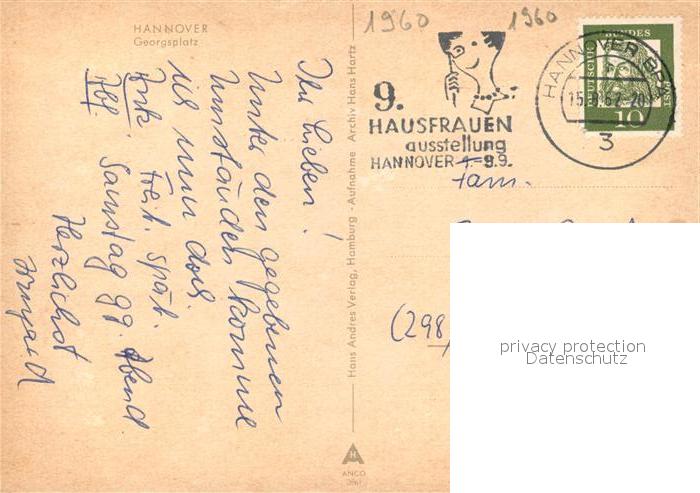 HANNOVER
Georgsplatz
1960
1960
9.
HAUSFRAUEN
ausstellung
HANNOVER 1.-9.9.
HANNOVER BPA
15.8.62-20
3
DEUTSCHE BUNDESPOST
10
Ihr Lieben!
Unter den gegebenen
Umständen komme
ich nun doch
Freit. spät.
Samstag gg. Abend.
Herzlichst
Irmgard
Hans Andres Verlag, Hamburg - Aufnahme - Archiv Hans Hartz
Fam.
(298
ANCO
privacy protection
Datenschutz